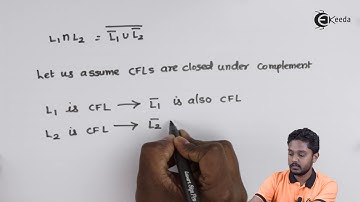 Ekeeda
L₁∩L₂ = \overline{L̅₁ ∪ L̅₂}
Let us assume CFLs are closed under complement
L₁ is CFL → L̅₁ is also CFL
L₂ is CFL → L̅₂